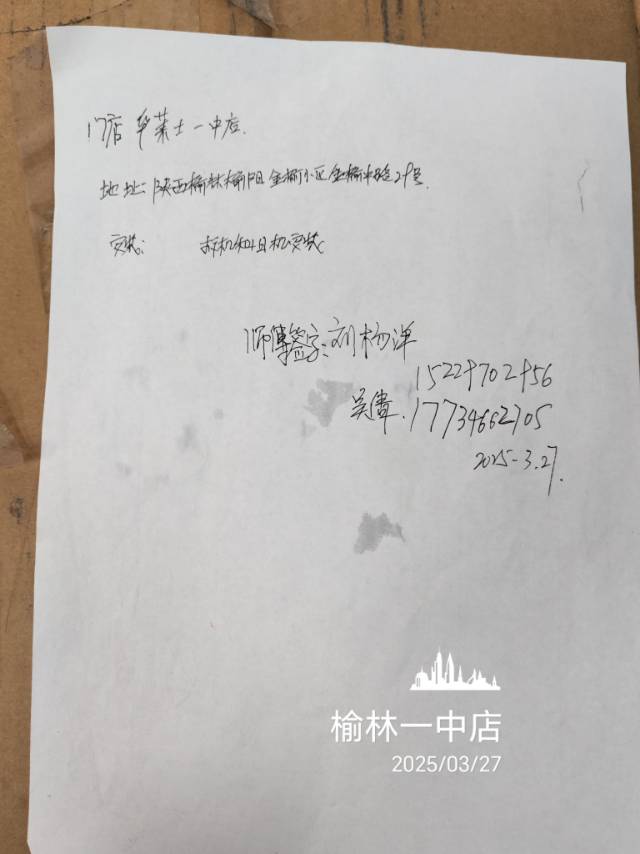 门店 华莱士一中店.
地址: 陕西榆林榆阳 金榆小区金榆中路29号.
安装: 机和 机安装
师傅签字: 刘杨洋
15229702956
吴伟. 17734662705
2025-3.27.
榆林一中店
2025/03/27